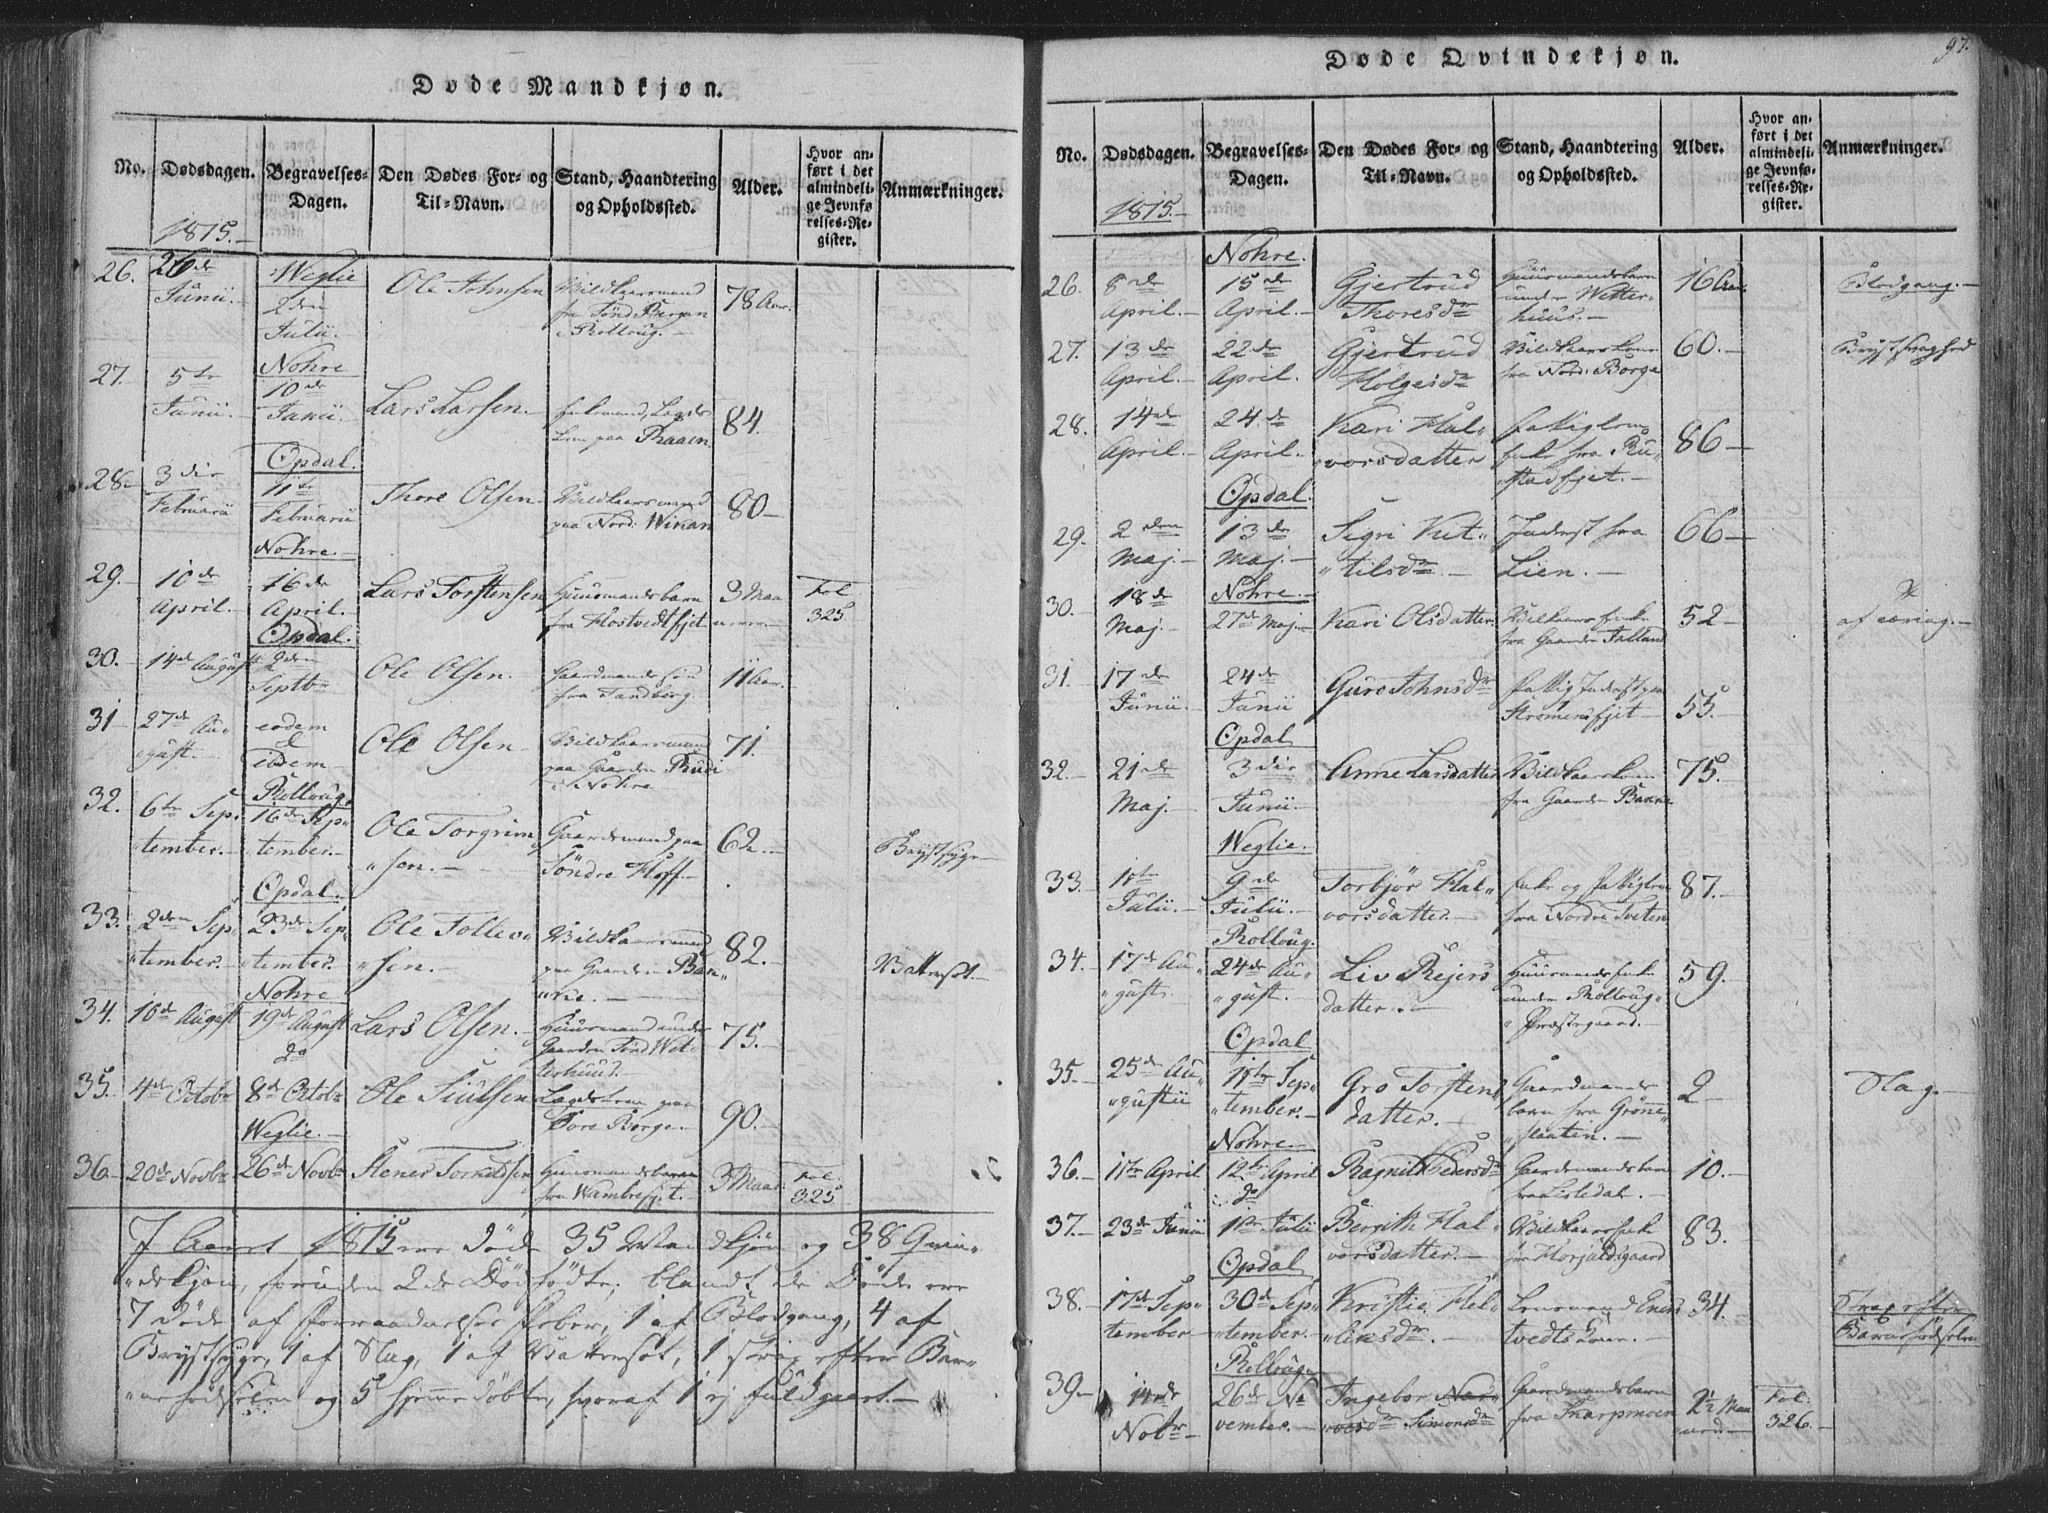 Døde Mandkjøn.
No.
Dødsdagen.
Begravelses-
Dagen.
Den Dødes For- og
Til-Navn.
Stand, Haandtering
og Opholdssted.
Alder.
Hvor an-
ført i det
almindeli-
ge Jevnfø
relses-Re-
gister.
Anmærkninger.
1815.-
26. 26de Junii. Weglie 2den Julii. Ole Johnsen Vildkaarsmand fra Sønd. Bergan i Rolloug. 78 Aar.
27. 5te Junii. Nohre 10de Junii Lars Larsen. Lægds Lem paa Raaen 84.
28. 3die Februarii Opdal. 11te Februarii Thore Olsen Vildkaarsmand paa Nord. Wikan 80-
29. 10de April. Nohre. 16de April. Lars Torstensen Huusmandsbarn fra Hostvedtfjet 3 Maa Fol 325
30. 14de August Opdal. 2den Septbr Ole Olsen. Gaardmandssøn fra Tandberg. 11 Aar.
31 27de Au-
gust. eodem & ibidem Ole Olsen Vildkaarsmand paa Gaarden Rudi i Nohre 71.
32. 6te Sep-
tember. Rolloug. 16de Sep-
tember. Ole Torgrim-
sen. Gaardemand paa Søndre Hoff 62. Brystsyge
33. 2den Sep-
tember. Opdal. 23de Sep-
tember. Ole Tollev-
sen. Vildkaarsmand paa Gaarden Ban-
rie. 82. Vattersot.
34. 10de August Nohre 19de August Lars Olsen. Huusmand under Gaarden Sønd Wet-
terhuus. 75.
35. 4de Octobr do 8de Octobr Ole Siulsen Lægdslem paa Store Børge. 90.
36 20de Novbr Weglie. 26de Novbr Stener Torkelsen Huusmandsbarn fra Wambrefjet. 3 Maa. Fol. 325
I Aaret 1815 ere Døde 35 Mandkjøn og 38 Qvin-
dekjøn, foruden 2de Dødfødte; blandt de Døde ere
7 Døde af Forraadnelses Feber, 1 af Blodgang, 4 af
Brystsyge, 1 af Slag, 1 af Vattersot, 1 strax efter Bar-
nefødselen og 5 hjemmedøbte, hvoraf 1 ej fuldgaaet.
97.
Døde Qvindekjøn.
No.
Dødsdagen.
Begravelses-
Dagen.
Den Dødes For- og
Til-Navn.
Stand, Haandtering
og Opholdssted.
Alder.
Hvor an-
ført i det
almindeli-
ge Jevnfø-
relses-Re-
gister.
Anmærkninger.
1815.-
26. 8de April. Nohre. 15de April. Gjertrud Thoresdr Huusmandsbarn under Wetter-
huus. 16 Aar. Blodgang.
27. 13de April. 22de April. Gjertrud Holgeisdr Vildkaarskone fra Nord. Børge 60. Brystsvaghed
28. 14de April. 24de April. Kari Hal-
vorsdatter fattiglem fra Ru-
stadfjet. 86
29. 2den Maj. Opdal. 13de Maj. Sigri Ket-
tilsdr. Inderst fra Lien. 66
30. 18de Maj. Nohre. 27de Maj. Kari Olsdatter Vilkaars fra Gaarden Tolland 52
31. 17de Junii. 24de Junii Guro Johnsdr fattig Inderst paa Stromersfjet 55.
32. 21de Maj. Opdal 3die Junii. Anne Larsdatter Vildkaarskone fra Gaarden Bakke 75.
33. 1ste Julii. Weglie. 9de Julii. Torbjør Hal-
vorsdatter. Enke og fattiglem fra Nordre Tveten 87.
34. 17de Au-
gust. Rolloug. 24de Au-
gust. Liv Rejers datter. Huusmands Enke under Rolloug Præstegaard. 59.
35. 25de Au-
gustii Opdal 11te Sep-
tember. Gro Torsten datter. Gaardmands barn fra Grønne-
flaaten. 2 Slag.
36. 11te April Nohre 12te April Ragnild Pedersdr Gaardemandsbarn fra Lisledal. 10.
37. 23de Junii do 1ste Julii Bergith Hal-
vorsdatter. Vildkaarsenke fra Horjulsgaard 83.
38. 17de Sep-
tember Opdal 30de Sep-
tember. Kristie Hel-
liksdr. Lensmand Eners-
tvedts Kone. 34. Strax efter Barnefødselen
39 14de Nobr Rolloug 26de No vember. Ingebor Simonsdr Gaardmandsbarn fra Skarpmoen 2½ Maa Fol. 326.